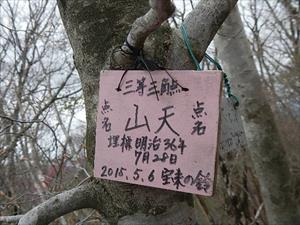 三等三角点
点名 山天 点名
埋標 明治36年
7月28日
2015.5.6 宝来の鈴